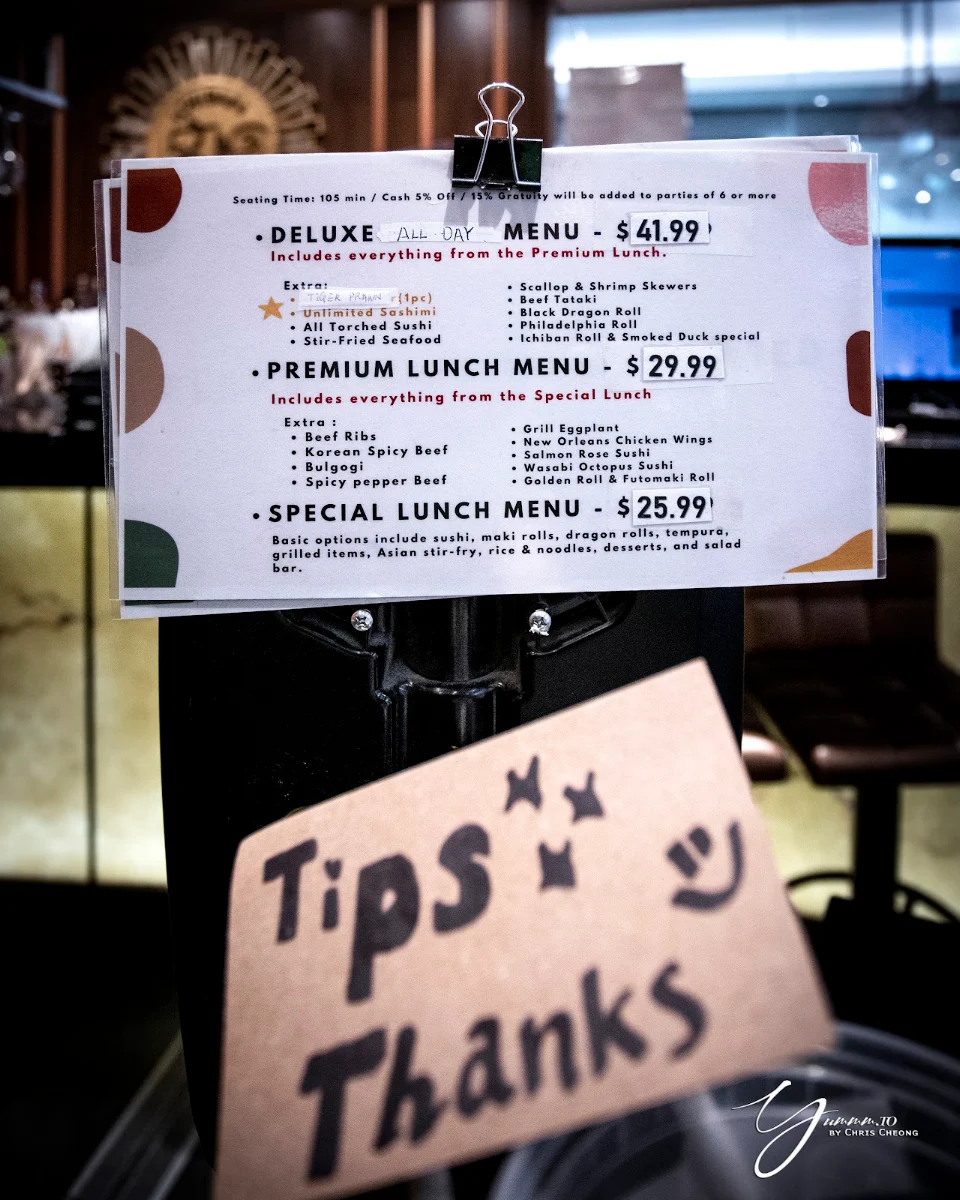 Seating Time: 105 min / Cash 5% Off / 15% Gratuity will be added to parties of 6 or more
• DELUXE ALL DAY MENU - $41.99
Includes everything from the Premium Lunch.
Extra:
• TIGER PRAWN r(1pc)
• Unlimited Sashimi
• All Torched Sushi
• Stir-Fried Seafood
• Scallop & Shrimp Skewers
• Beef Tataki
• Black Dragon Roll
• Philadelphia Roll
• Ichiban Roll & Smoked Duck special
• PREMIUM LUNCH MENU - $29.99
Includes everything from the Special Lunch
Extra :
• Beef Ribs
• Korean Spicy Beef
• Bulgogi
• Spicy pepper Beef
• Grill Eggplant
• New Orleans Chicken Wings
• Salmon Rose Sushi
• Wasabi Octopus Sushi
• Golden Roll & Futomaki Roll
• SPECIAL LUNCH MENU - $25.99
Basic options include sushi, maki rolls, dragon rolls, tempura,
grilled items, Asian stir-fry, rice & noodles, desserts, and salad
bar.
Tips
Thanks
Yummm.TO
BY CHRIS CHEONG